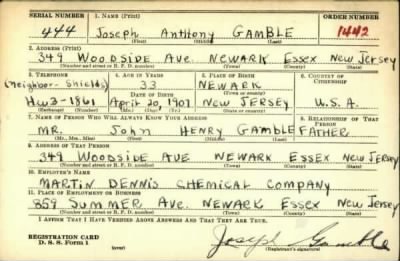 SERIAL NUMBER 1. NAME (Print) ORDER NUMBER
444 Joseph Anthony GAMBLE 1442
(First) (Middle) (Last)
2. ADDRESS (Print)
349 WOODSIDE AVE. NEWARK ESSEX NEW JERSEY
(Number and street or R. F. D. number) (Town) (County) (State)
3. TELEPHONE 4. AGE IN YEARS 5. PLACE OF BIRTH 6. COUNTRY OF CITIZENSHIP
(Neighbor-Shields) 33 NEWARK
DATE OF BIRTH (Town or county)
Hu3-1861 April 20, 1907 NEW JERSEY U.S.A.
(Exchange) (Number) (Mo.) (Day) (Yr.) (State or country)
7. NAME OF PERSON WHO WILL ALWAYS KNOW YOUR ADDRESS 8. RELATIONSHIP OF THAT PERSON
MR. John HENRY GAMBLE FATHER
(Mr., Mrs., Miss) (First) (Middle) (Last)
9. ADDRESS OF THAT PERSON
349 WOODSIDE AVE NEWARK ESSEX NEW JERSEY
(Number and street or R. F. D. number) (Town) (County) (State)
10. EMPLOYER'S NAME
MARTIN DENNIS CHEMICAL COMPANY
11. PLACE OF EMPLOYMENT OR BUSINESS
859 SUMMER AVE. NEWARK ESSEX NEW JERSEY
(Number and street or R. F. D. number) (Town) (County) (State)
I AFFIRM THAT I HAVE VERIFIED ABOVE ANSWERS AND THAT THEY ARE TRUE.
REGISTRATION CARD
D. S. S. Form 1
Joseph Gamble
(Registrant's signature)